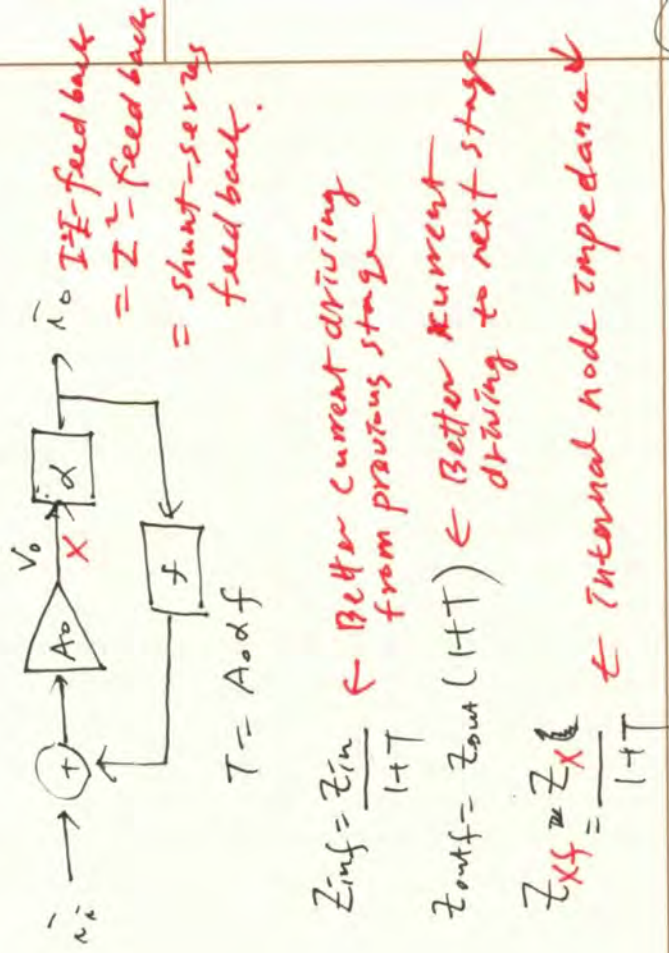 V₀
i_i → + → A₀ → X → α → i_o
f
II-feedback
= I²-feedback
= shunt-series
feedback.
T = A₀αf
Z_inf = Z_in / 1+T ← Better current driving
from previous stage
Z_outf = Z_out (1+T) ← Better current
driving to next stage
Z_Xf = Z_X / 1+T ← Internal node impedance ↓